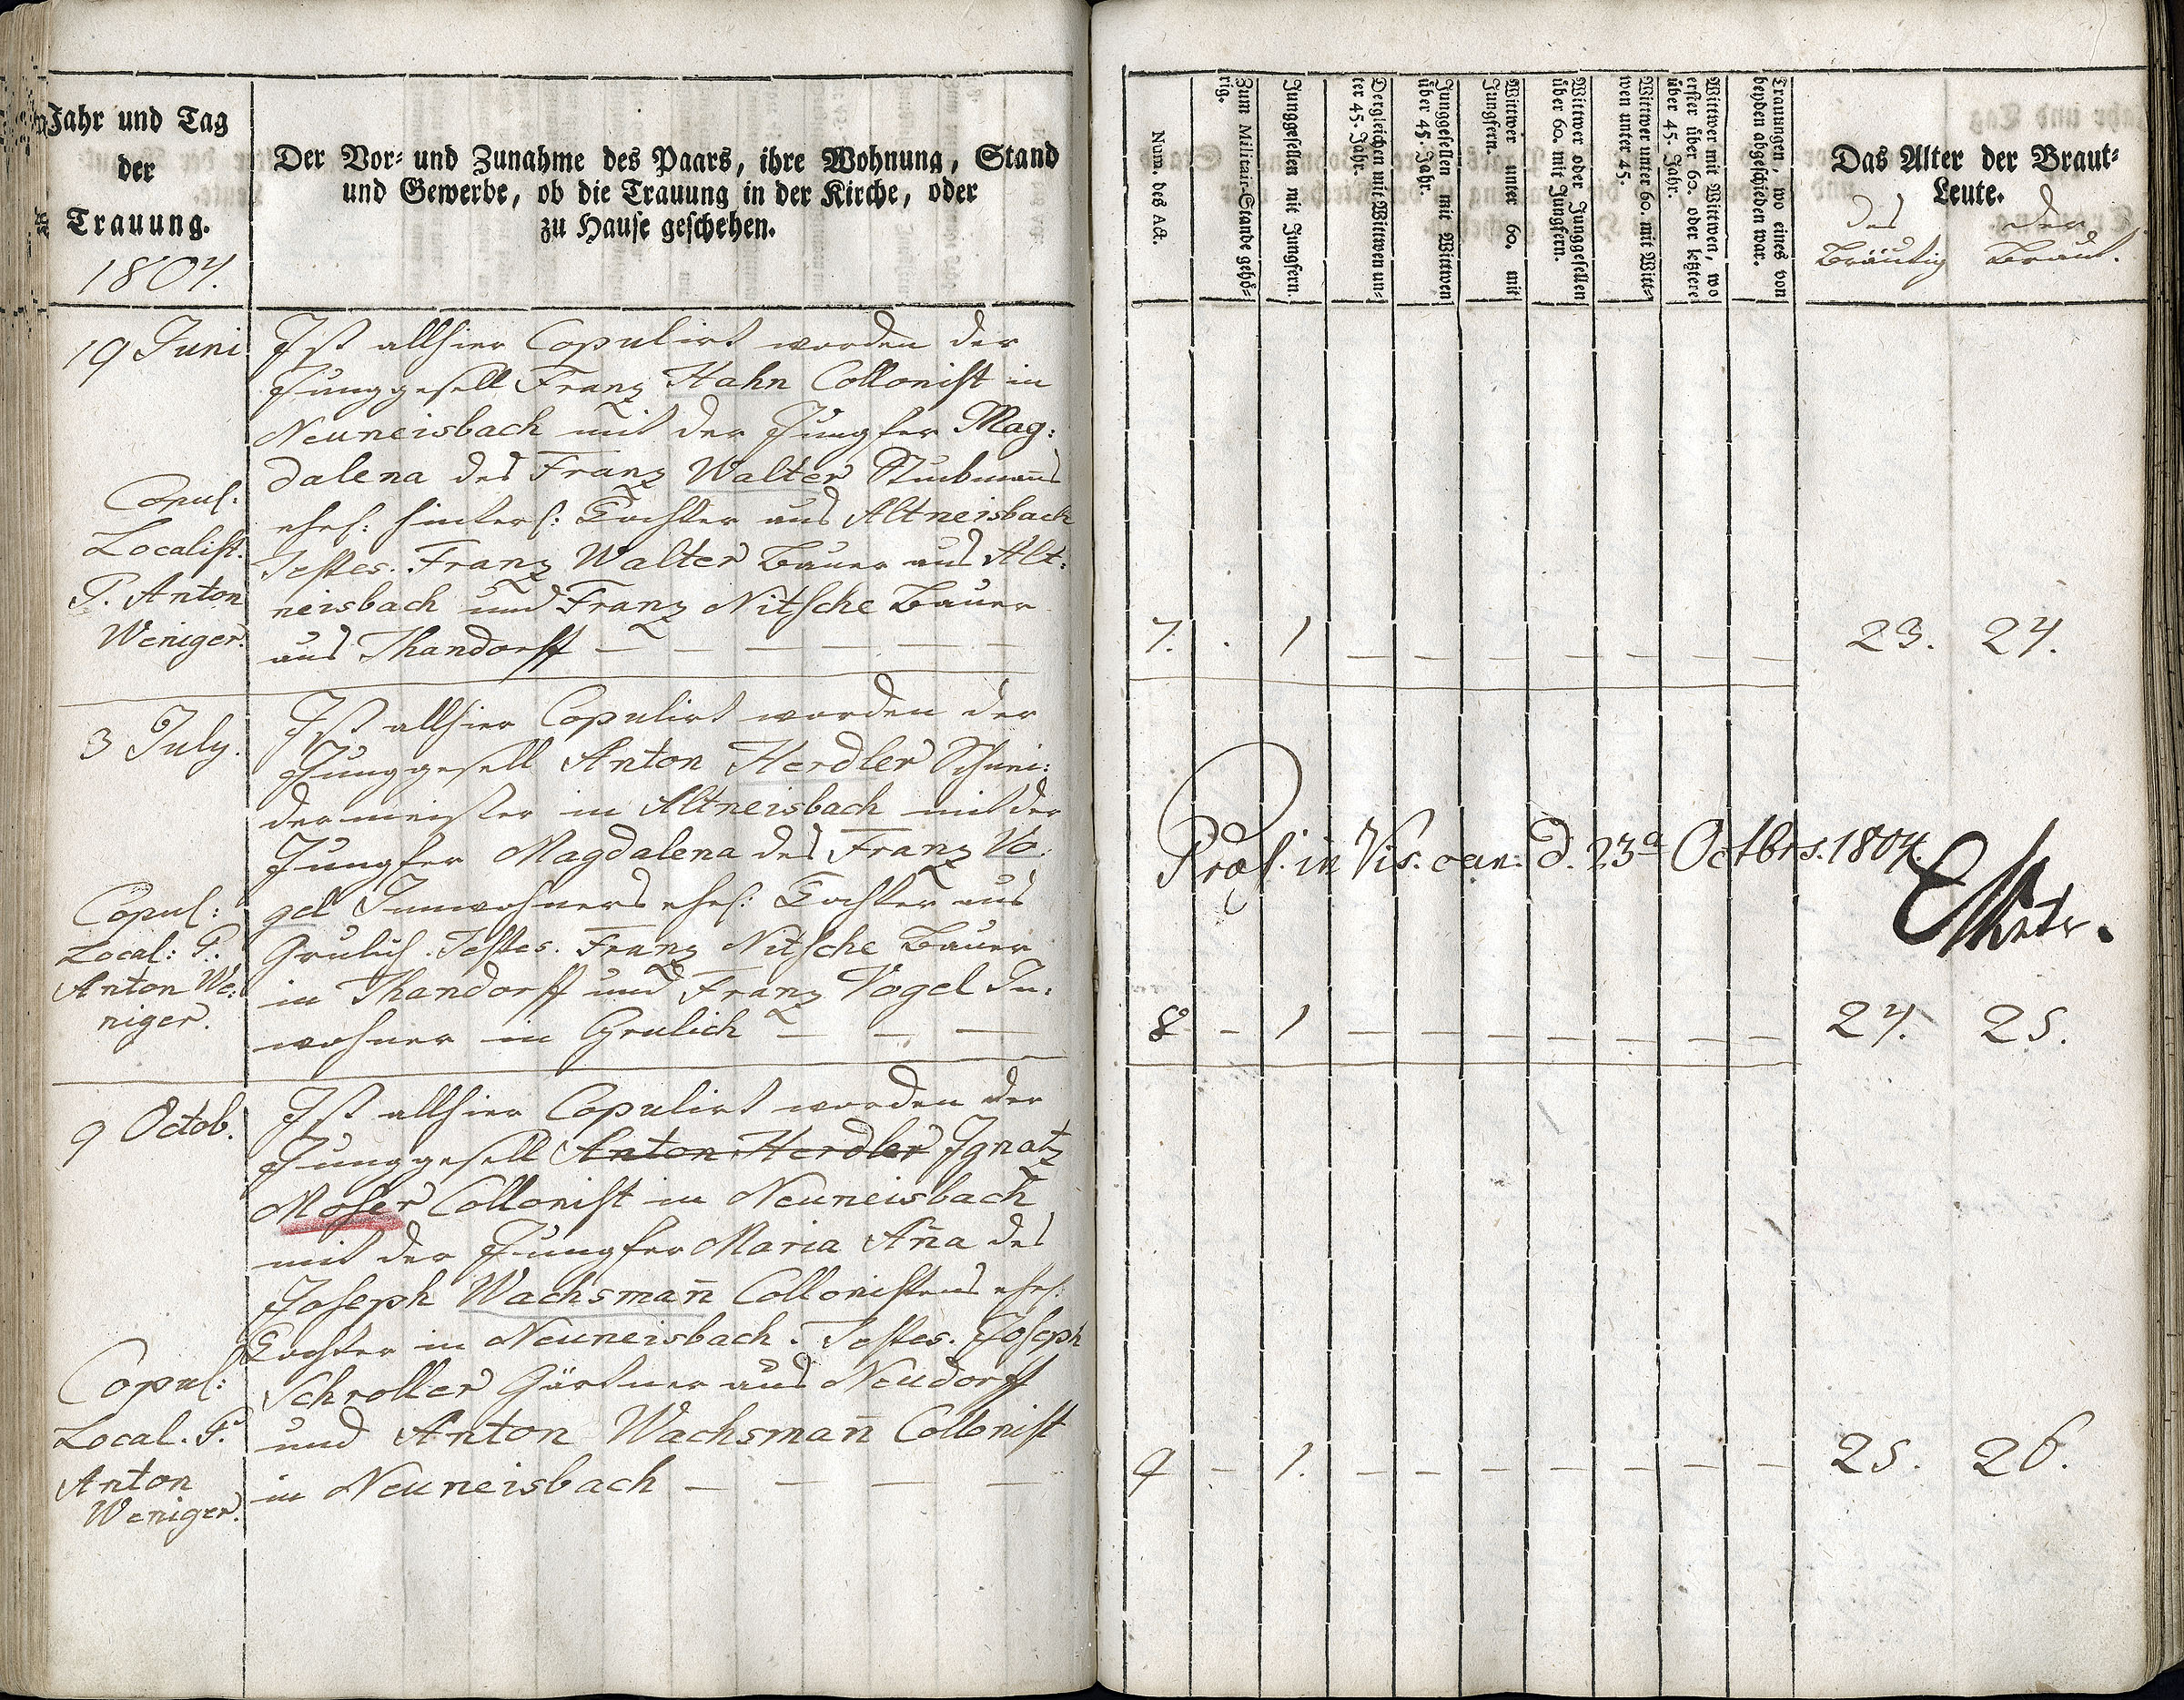 Jahr und Tag
der
Trauung.
1804.
Der Vor- und Zunahme des Paars, ihre Wohnung, Stand
und Gewerbe, ob die Trauung in der Kirche, oder
zu Hause geschehen.
19 Juni
Copul:
Localist.
P. Anton
Weniger.
Ist allhier Copulirt worden der
Junggesell Franz Hahn Collonist in
Neuneisbach mit der Jungfer Mag:
dalena des Franz Walter
ehel: hinterl: Tochter aus Altneisbach
Testes. Franz Walter Bauer aus Alt:
neisbach und Franz Nitsche Bauer
aus Thandorff
3 July.
Copul:
Local: P.
Anton We:
niger.
Ist allhier Copulirt worden der
Junggesell Anton Herdler Schnei:
dermeister in Altneisbach mit der
Jungfer Magdalena des Franz Vo:
gel Innwohners ehel: Tochter aus
Grulich. Testes. Franz Nitsche Bauer
in Thandorff und Franz Vogel In:
wohner in Grulich
9 Octob.
Copul:
Local. P.
Anton
Weniger.
Ist allhier Copulirt worden der
Junggesell Anton Herdler Ignatz
Moser Collonist in Neuneisbach
mit der Jungfer Maria Aña des
Joseph Wachsmañ Collonistens ehel:
Tochter in Neuneisbach. Testes. Joseph
Schroller Gärtner aus Neudorff
und Anton Wachsmañ Collonist
in Neuneisbach
Num. des Act.
Zum Militair-Stande gehö-
rig.
Junggesellen mit Jungfern.
Dergleichen mit Wittwen un-
ter 45. Jahr.
Junggesellen mit Wittwen
über 45. Jahr.
Wittwer unter 60. mit
Jungfern.
Wittwer oder Junggesellen
über 60. mit Jungfern.
Wittwer unter 60. mit Witt-
wen unter 45.
Wittwer mit Wittwen, wo
erster über 60. oder letztere
über 45. Jahr.
Trauungen, wo eines von
beyden abgeschieden war.
Das Alter der Braut-
Leute.
des der
Bräutig Braut.
7. 1 23. 24.
Prod. in Vis. can: d. 23a Octbrs. 1804.
8 1 24. 25.
9 1. 25. 26.